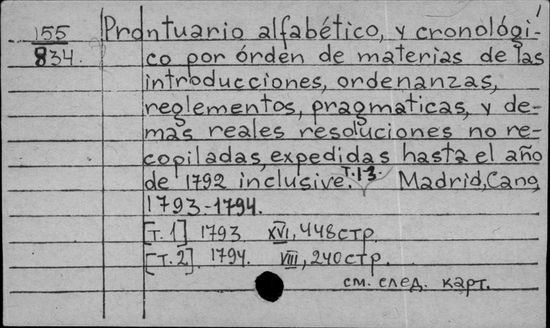 155
834.
Prontuario alfabético, y cronológi-
co por órden de materias de las
introducciones, ordenanzas,
reglementos, pragmaticas, y de-
mas reales resoluciones no re-
copiladas, expedidas hasta el año
de 1792 inclusive. Т.1-3. Madrid, Cano,
1793-1794.
[Т.1] 1793 XVI, 448 стр.
[Т.2]. 1794. VIII, 240 стр.
см. след. карт.